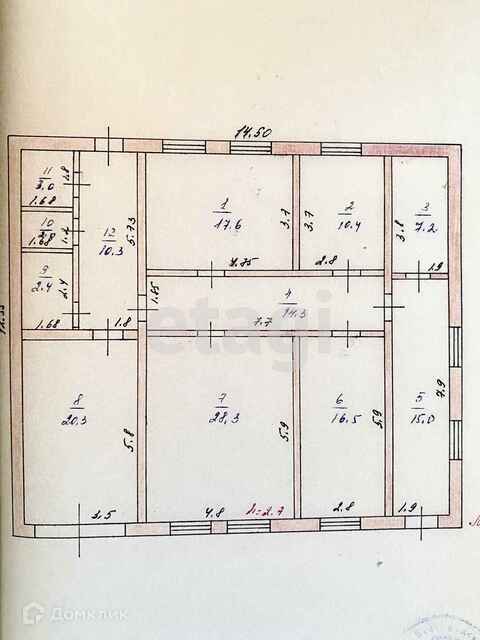 14.50
11
3.0
1.8
1.68
10
1.2
1.68
9
2.4
2.4
1.68
12
10.3
5.73
1.8
1
17.6
3.7
4.75
2
10.4
3.7
2.8
3
7.2
3.8
1.9
4
14.3
1.85
7.7
etagi
8
20.3
5.8
3.5
7
28.3
5.9
4.8
h=2.7
6
16.5
5.9
2.8
5
15.0
7.9
1.9
Домклик